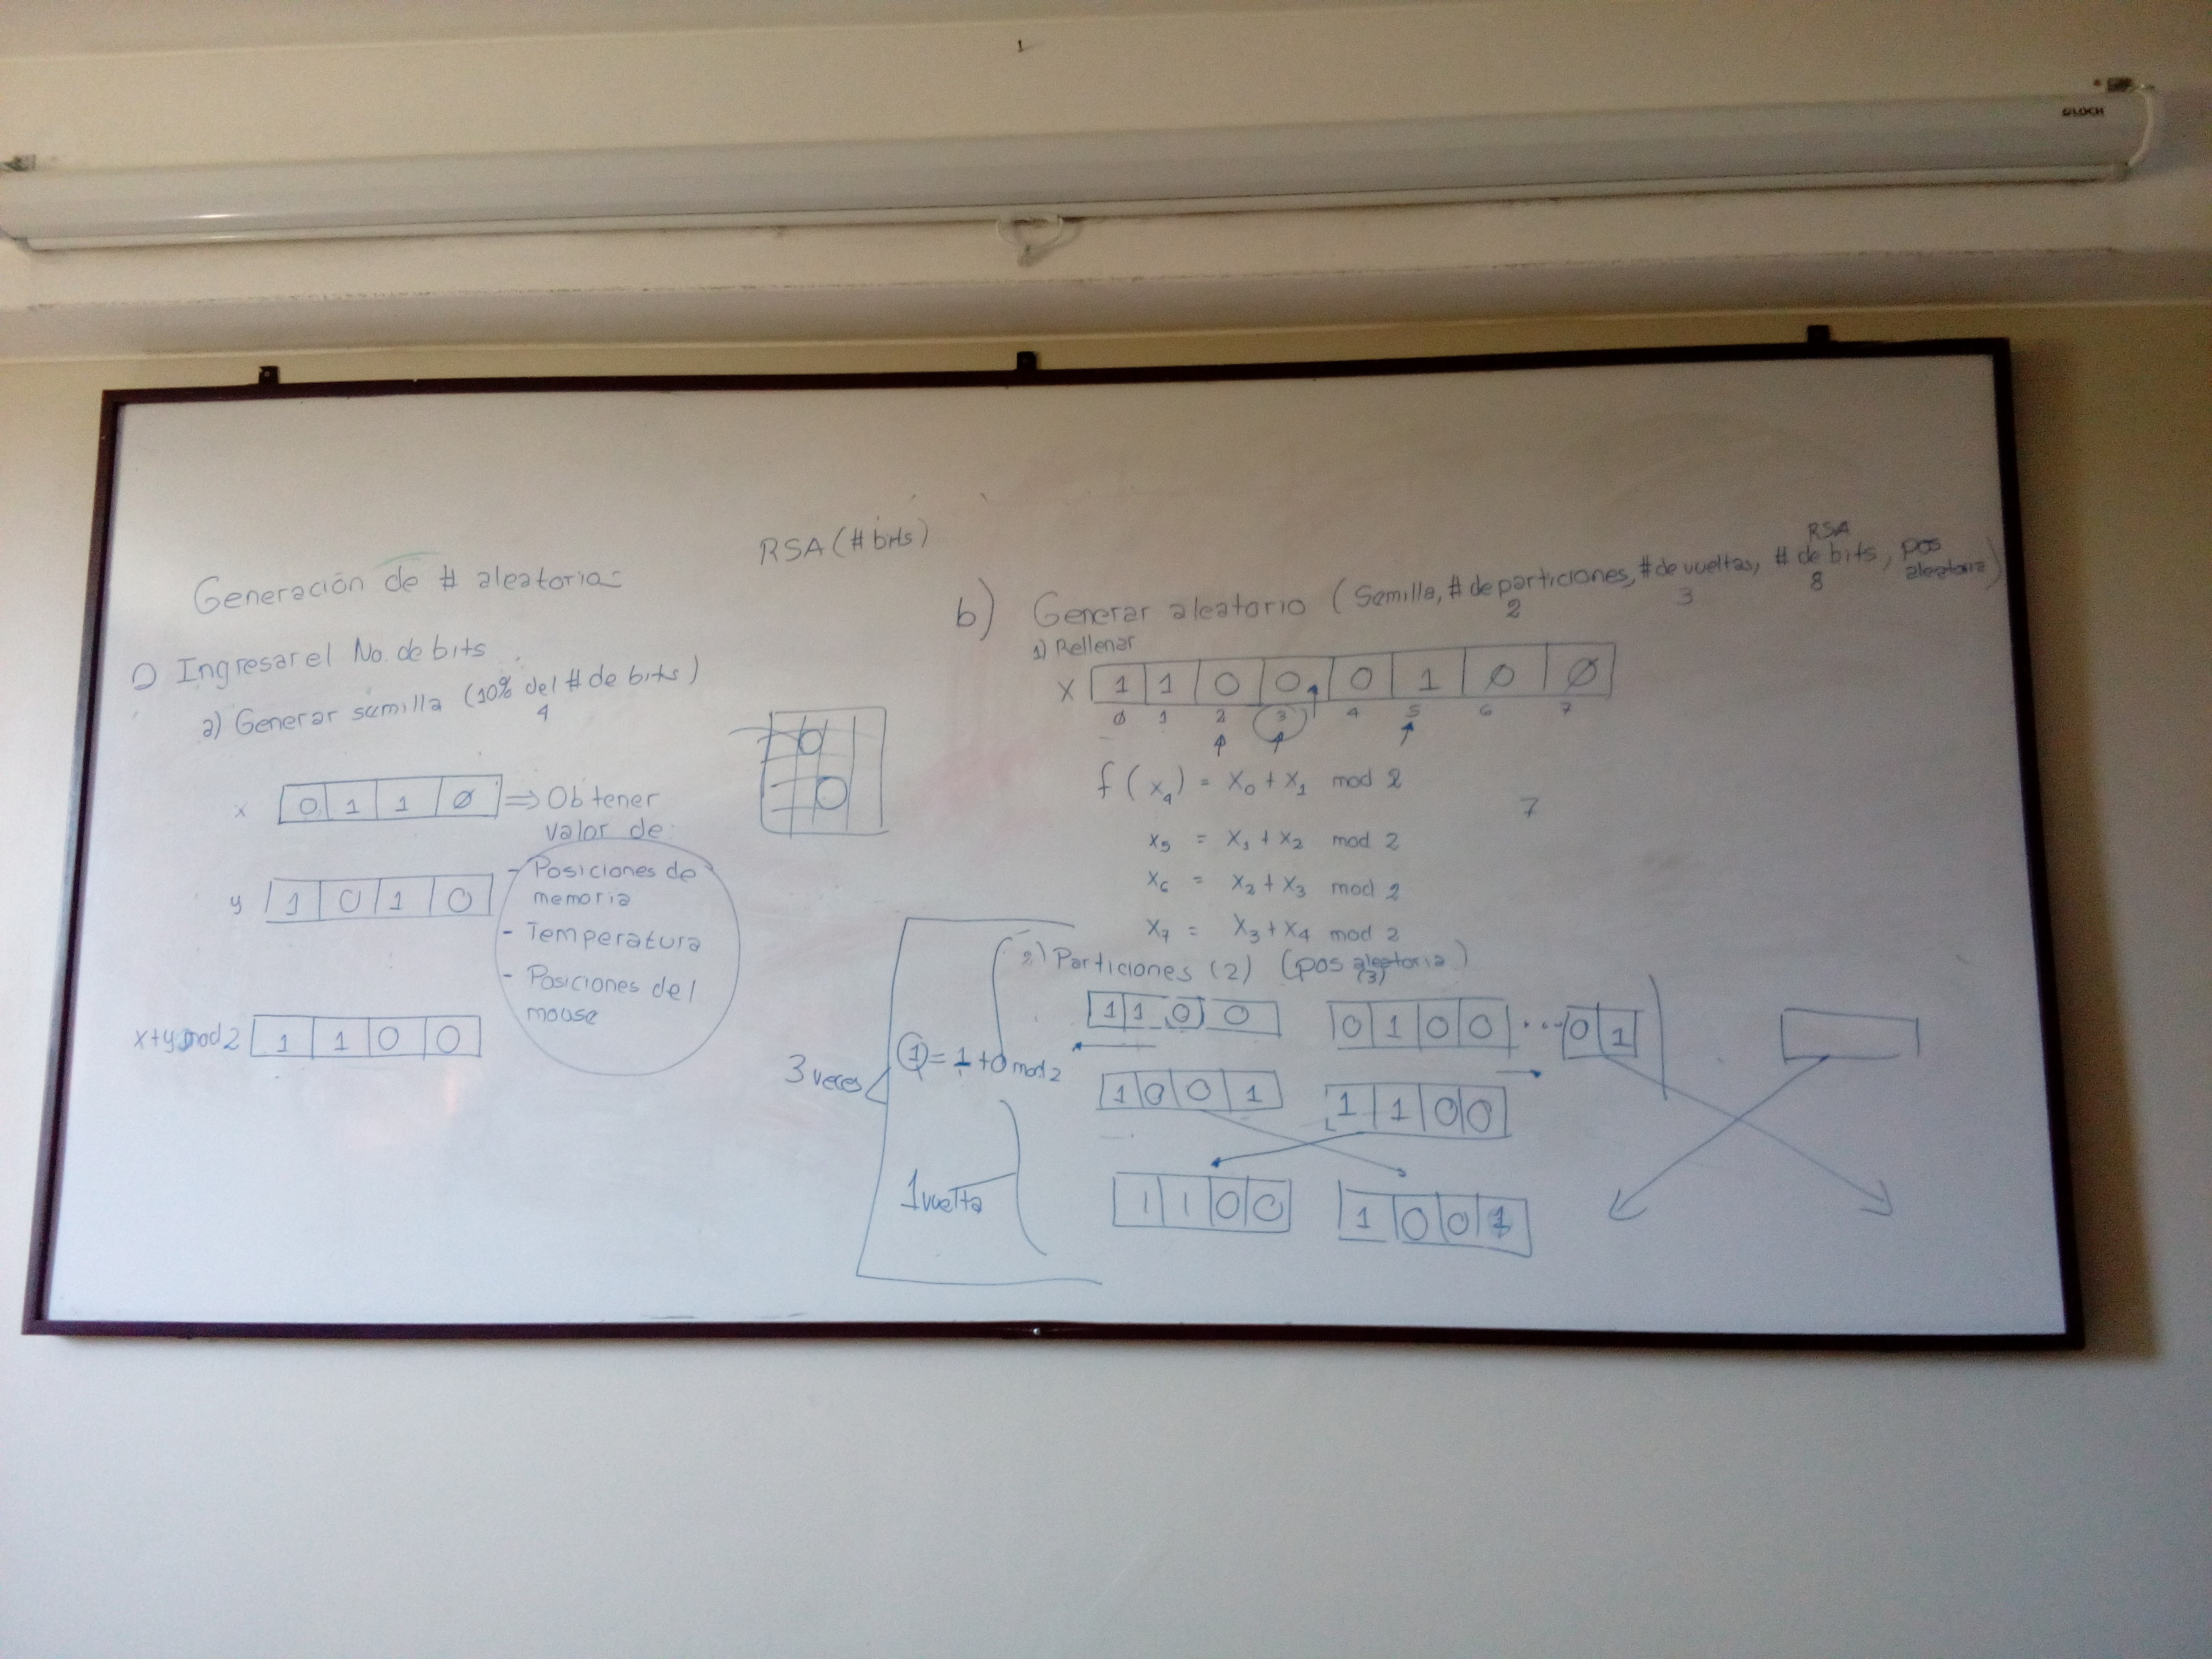 GLOCH
RSA (# bits)
Generación de # aleatorios
1) Ingresar el No. de bits
a) Generar semilla (10% del # de bits)
4
x 0 1 1 0 ⇒ Obtener
valor de:
- Posiciones de
memoria
- Temperatura
- Posiciones del
mouse
y 1 0 1 0
x+y mod 2 1 1 0 0
RSA
b) Generar aleatorio (Semilla, # de particiones, # de vueltas, # de bits, pos aleatoria)
2 3 8
1) Rellenar
X 1 1 0 0 0 1 0 0
0 1 2 3 4 5 6 7
f(x4) = x0 + x1 mod 2
7
x5 = x1 + x2 mod 2
x6 = x2 + x3 mod 2
x7 = x3 + x4 mod 2
2) Particiones (2) (pos aleatoria)
(3)
1 1 0 0 0 1 0 0 ... 0 1
3 veces
1 = 1 + 0 mod 2
1 0 0 1 1 1 0 0
1 vuelta
1 1 0 0 1 0 0 1